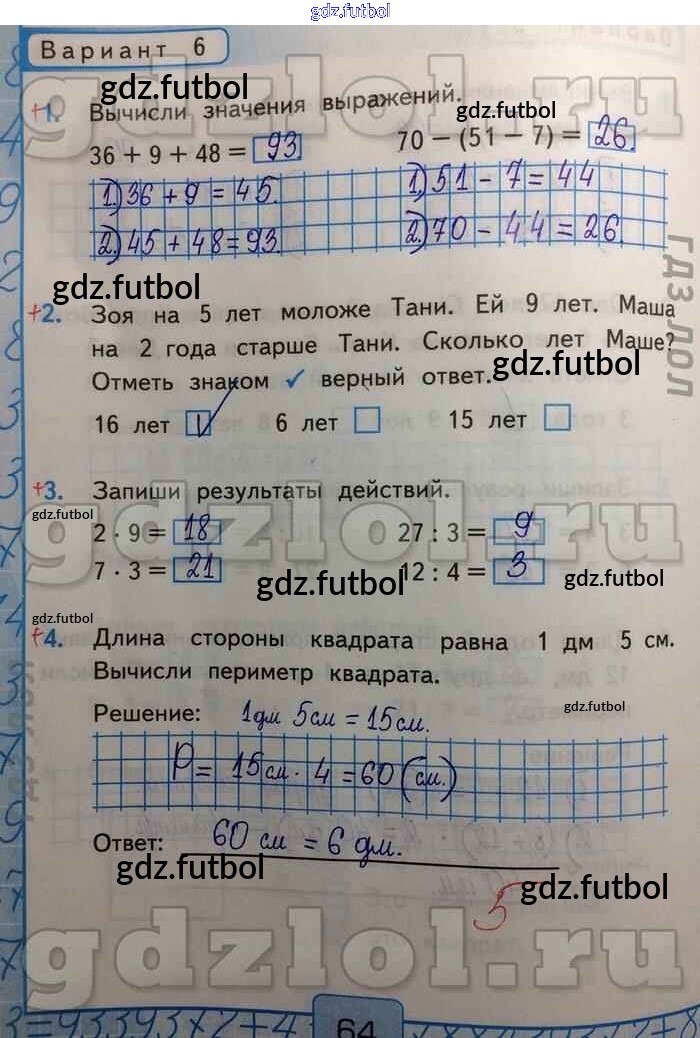 gdz.futbol
Вариант 6
gdz.futbol
gdzlol.ru
+1. Вычисли значения выражений.
gdz.futbol
36 + 9 + 48 = 93
70 − (51 − 7) = 26.
1) 36 + 9 = 45.
1) 51 − 7 = 44
2) 45 + 48 = 93.
2) 70 − 44 = 26.
гдз лол
gdz.futbol
+2. Зоя на 5 лет моложе Тани. Ей 9 лет. Маша
на 2 года старше Тани. Сколько лет Маше?
gdz.futbol
Отметь знаком ✓ верный ответ.
16 лет ✓ 6 лет □ 15 лет □
+3. Запиши результаты действий.
gdz.futbol
gdzlol.ru
2 · 9 = 18
27 : 3 = 9
7 · 3 = 21
12 : 4 = 3
gdz.futbol
gdz.futbol
gdz.futbol
+4. Длина стороны квадрата равна 1 дм 5 см.
Вычисли периметр квадрата.
гдз лол
gdz.futbol
Решение: 1 дм 5 см = 15 см.
P = 15 см · 4 = 60 (см.)
Ответ: 60 см = 6 дм.
gdz.futbol
gdz.futbol
5
gdzlol.ru
64